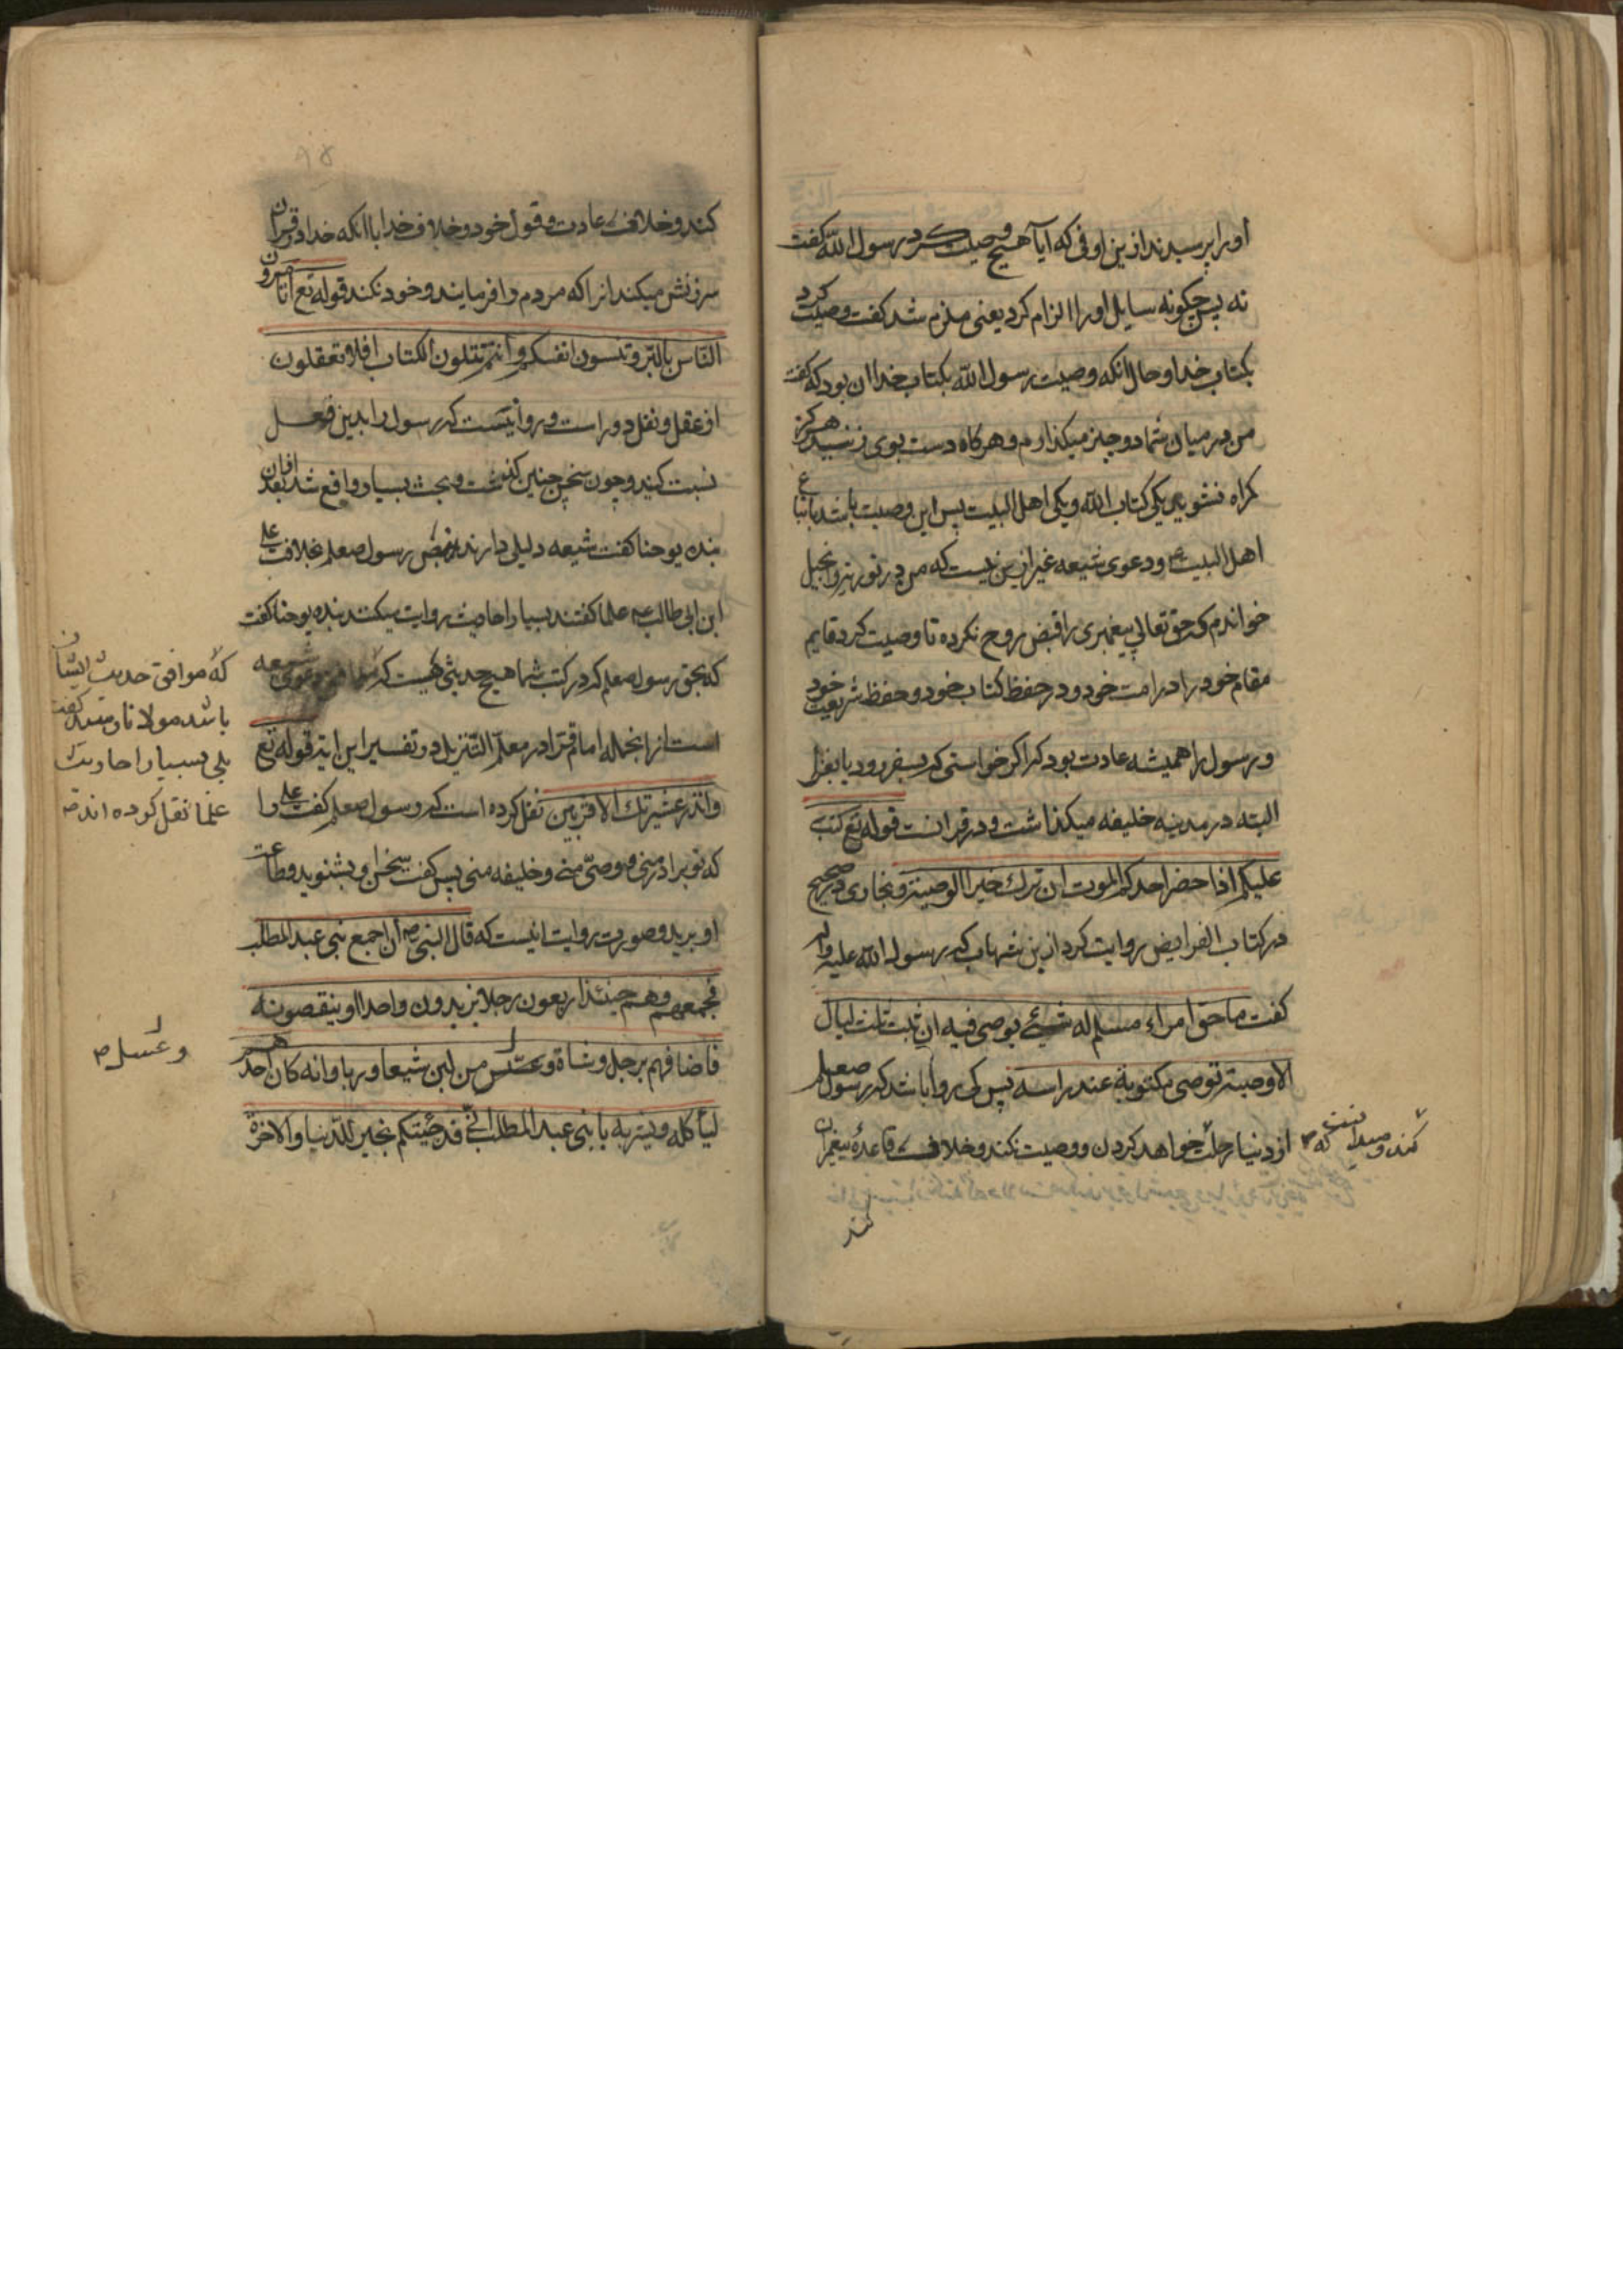 اورا پرسیدند ازین اوفی که ایا هیچ وصیت کرد رسول الله گفت
نه پس چگونه سایل اورا الزام کرد یعنی ملزم شد گفت وصیت کرد
بکتاب خدا و حال انکه وصیت رسول الله بکتاب خدا ان بود که گفت
من در میان شما دو چیز میکذارم و هرکاه دست بوی زنید هرکز
کمراه نشوید یکی کتاب الله و یکی اهل البیت پس این وصیت باشد باتباع
اهل البیت ودعوی شیعه غیر ازین نیست که من در توریة وانجیل
خواندم که حق تعالی پیغمبری را قبض روح نکرده تا وصیت کرد قایم
مقام خود را در امت خود ودر حفظ کتاب خود وحفظ شریعت خود
ورسول را همیشه عادت بود که اکر خواستی که بسفر رود یا بغزا
البته در مدینه خلیفه میکذاشت ودر قرانست قوله تع کتب
علیکم اذا حضر احدکم الموت ان ترك خیرا الوصیة وبخاری در صحیح
در کتاب الفرایض روایت کرد ازین شهاب که رسول الله علیه واله
گفت ما حق امراء مسلم له شیئ یوصی فیه ان تبت ثلث لیال
الا وصیته توصی مکتوبة عند راسه پس کی روا باشد که رسول صعلم
از دنیا رحلت خواهد کردن و وصیت نکند وخلاف قاعدهٔ پیغمبران
کند و میدانست که
کند
۹۵
کند وخلاف عادت وقول خود وخلاف خدا با انکه خدا در قران
سرزنش میکند انرا که مردم را فرمایند وخود نکند قوله تع اتامرون
الناس بالبر وتنسون انفسکم وانتم تتلون الکتاب افلا تعقلون
از عقل ونقل دور است وروا نیست که رسول را بدین فعل
نسبت کنید وچون سخن چنین گذشت وبحث بسیار واقع شد بعد ازان
بنده یوحنا گفت شیعه دلیلی دارند بنص رسول صعلم بخلافت علی
ابن ابی طالب علما گفتند بسیار احادیث روایت میکنند بنده یوحنا گفت
که بحق رسول صعلم که در کتب شما هیچ حدیثی هست که موافق دعوی شیعه
که موافق حدیث ایشان
باشد مولانا گفت
بلی بسیار احادیث
علما نقل کرده اند
است ازانجمله امام قرا در معلم التنزیل در تفسیر این ایة قوله تع
وانذر عشیرتك الاقربین نقل کرده است که رسول صعلم گفت علی را
که تو برادر منی و وصی منی وخلیفه منی پس گفت سخن او بشنوید وطاعت
او برید وصورت روایت اینست که قال النبی ان اجمع بنی عبد المطلب
فجمعهم وهم حینئذ اربعون رجلا یزیدون واحدا او ینقصونه
فاضافهم برجل وشاة وعس من لبن شیعا وریا وانه کان احدهم
وعسل
لیأکله ویشربه یا بنی عبد المطلب انی قد جئتکم بخیر الدنیا والاخرة